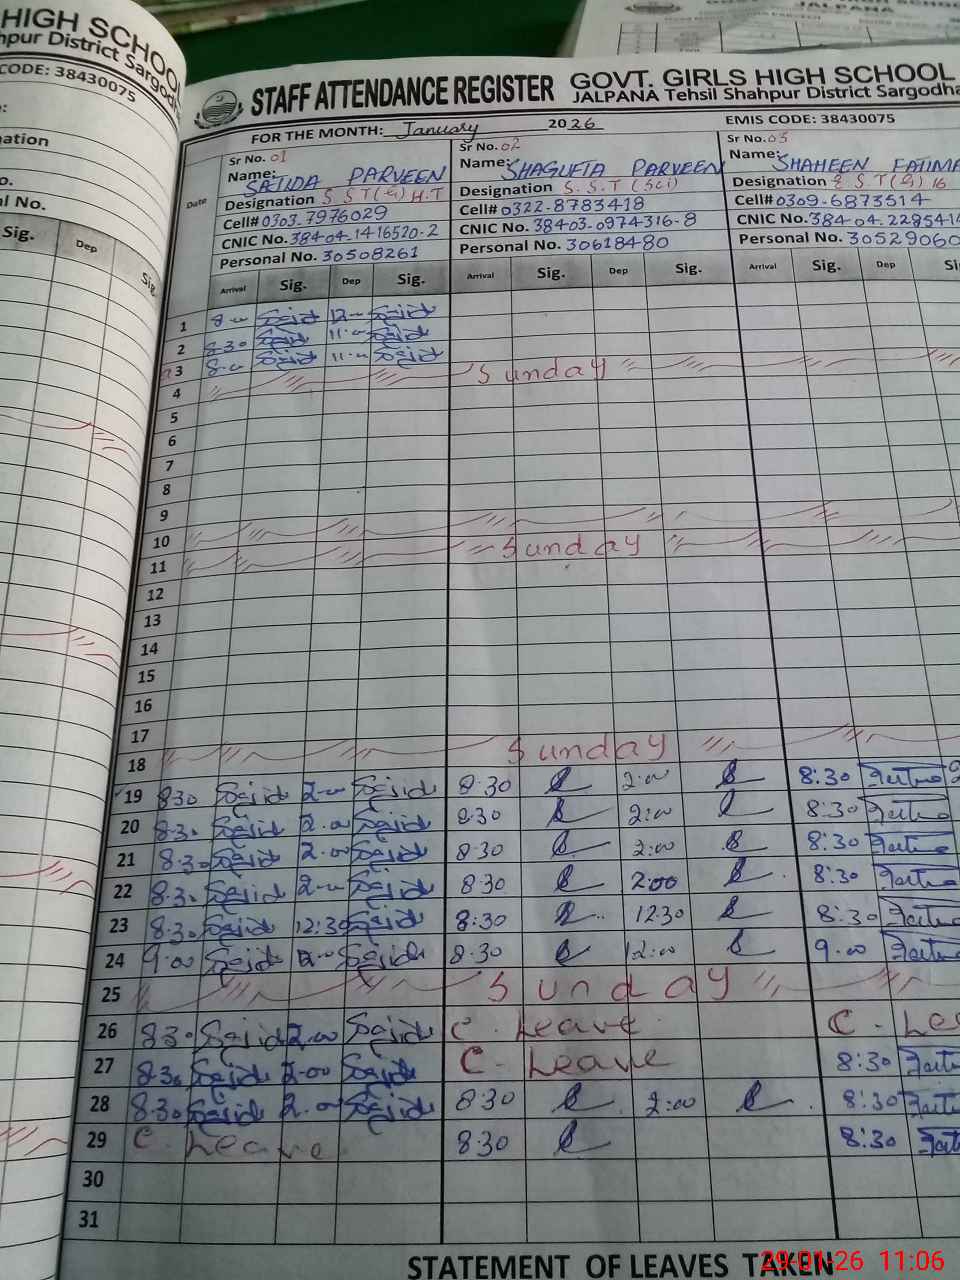 HIGH SCHOOL
hpur District Sargodh
CODE: 38430075
JALPANA
STAFF ATTENDANCE REGISTER GOVT. GIRLS HIGH SCHOOL
JALPANA Tehsil Shahpur District Sargodha
FOR THE MONTH: January 2026 EMIS CODE: 38430075
Date
Sr No. 01 Sr No. 02 Sr No. 03
Name: SAJIDA PARVEEN Name: SHAGUFTA PARVEEN Name: SHAHEEN FATIMA
Designation S S T (G) H.T Designation S.S.T (Sci) Designation E S T (G) 16
Cell# 0303-7976029 Cell# 0322-8783418 Cell# 0309-6873514
CNIC No. 38404-1416520-2 CNIC No. 38403-0974316-8 CNIC No. 38404-2295414
Personal No. 30508261 Personal No. 30618480 Personal No. 3052906
Sig. Dep Sig.
Arrival Sig. Dep Sig. Arrival Sig. Dep Sig. Arrival Sig. Dep Si
1 8-00 Sajid 12-00 Sajid
2 8.30 Sajid 11.00 Sajid
3 8.00 Sajid 11.00 Sajid
4 Sunday
5
6
7
8
9
10
11 Sunday
12
13
14
15
16
17
18 Sunday
19 830 Sajid 2-00 Sajid 8.30 2:00 8:30 Fatima
20 8.30 Sajid 2.00 Sajid 8.30 2:00 8:30 Fatima
21 8.30 Sajid 2.00 Sajid 8.30 2:00 8:30 Fatima
22 8.30 Sajid 2-00 Sajid 8.30 2:00 8:30 Fatima
23 8.30 Sajid 12:30 Sajid 8:30 12.30 8:30 Fatima
24 9.00 Sajid 12-00 Sajid 8.30 12:00 9.00 Fatima
25 Sunday
26 830 Sajid 2.00 Sajid C. Leave C. Le
27 8.30 Sajid 2-00 Sajid C. Leave 8:30 Fati
28 8.30 Sajid 2.00 Sajid 8.30 2:00 8:30 Fati
29 C. Leave 8.30 8:30 Fati
30
31
STATEMENT OF LEAVES TAKEN
29-01-26 11:06